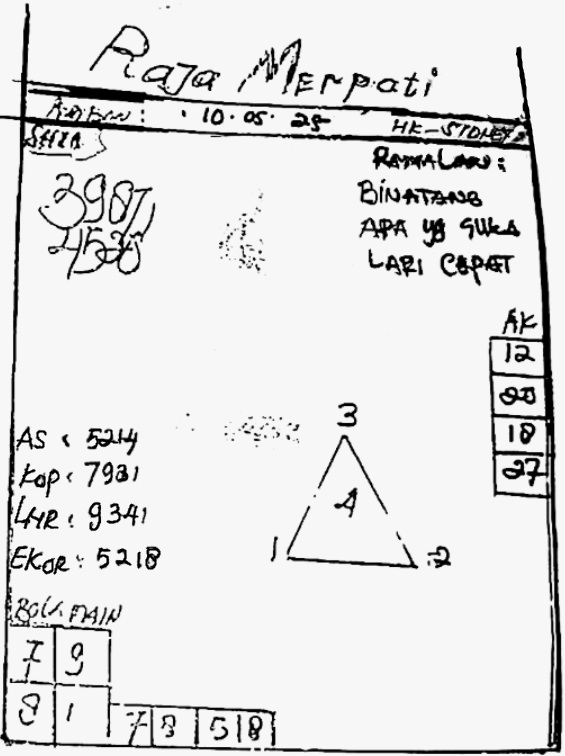 Raja Merpati
10.05.25
HK-SYDNEY
RAMALAN:
BINATANG
APA yg SUKA
LARI CEPAT
3987
4538
AK
12
20
18
27
3
A
1 2
AS : 5214
KOP : 7931
: 9341
EKOR : 5218
MAIN
7 9
8 1
7 8 5 8